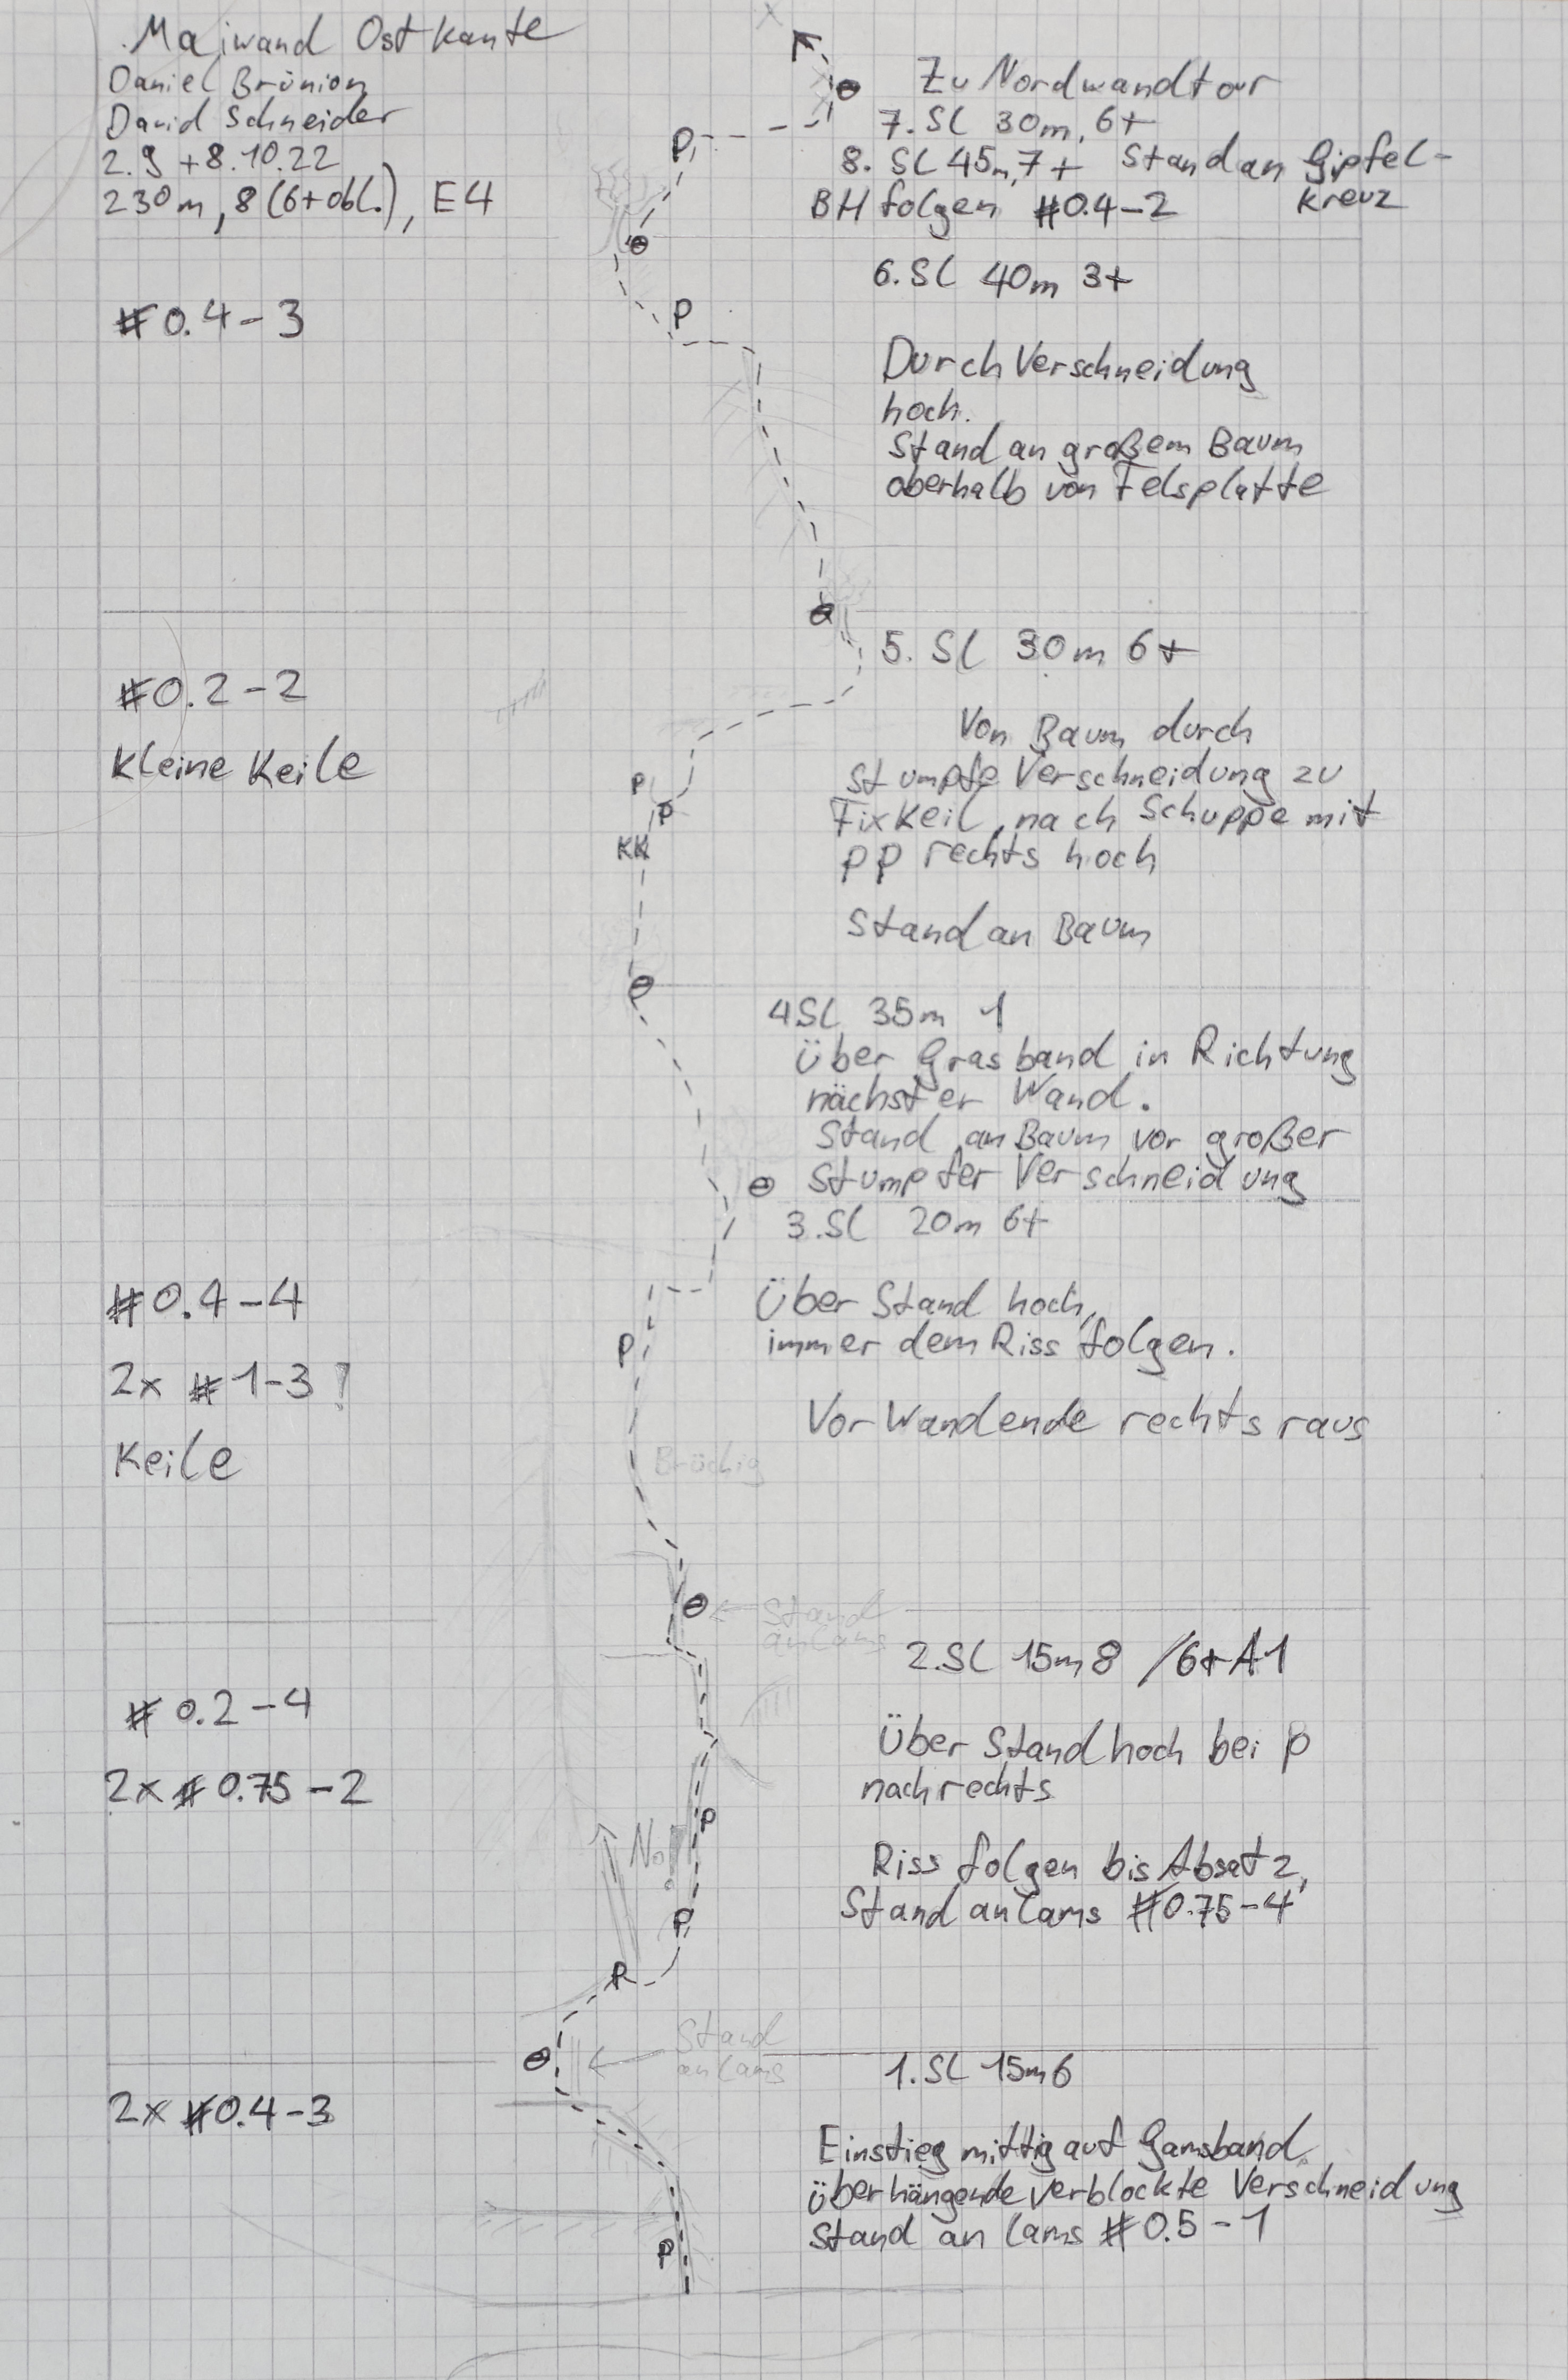 Maiwand Ostkante
Daniel Brünion
David Schneider
2.9 + 8.10.22
230m, 8 (6+ obl.), E4
Zu Nordwandtour
7. SL 30m, 6+
8. SL 45m, 7+ Stand an Gipfel-
kreuz
BH folgen #0.4-2
P
6. SL 40m 3+
#0.4-3
P
Durch Verschneidung
hoch.
Stand an großem Baum
oberhalb von Felsplatte
5. SL 30m 6+
#0.2-2
kleine Keile
Von Baum durch
stumpfe Verschneidung zu
Fixkeil, nach Schuppe mit
PP rechts hoch
P
P
KK
Stand an Baum
4SL 35m 1
Über Grasband in Richtung
nächster Wand.
Stand an Baum vor großer
stumpfer Verschneidung
3. SL 20m 6+
#0.4-4
2x #1-3!
Keile
Über Stand hoch,
immer dem Riss folgen.
P
Vor Wandende rechts raus
Brüchig
Stand
an Cams
2. SL 15m 8 /6+ A1
#0.2-4
2x #0.75-2
Über Stand hoch bei P
nach rechts
P
No!
Riss folgen bis Absatz,
Stand an Cams #0.75-4
P
P
Stand
an Cams
1. SL 15m 6
2x #0.4-3
Einstieg mittig auf Gamsband.
überhängende verblockte Verschneidung
Stand an Cams #0.5-1
P